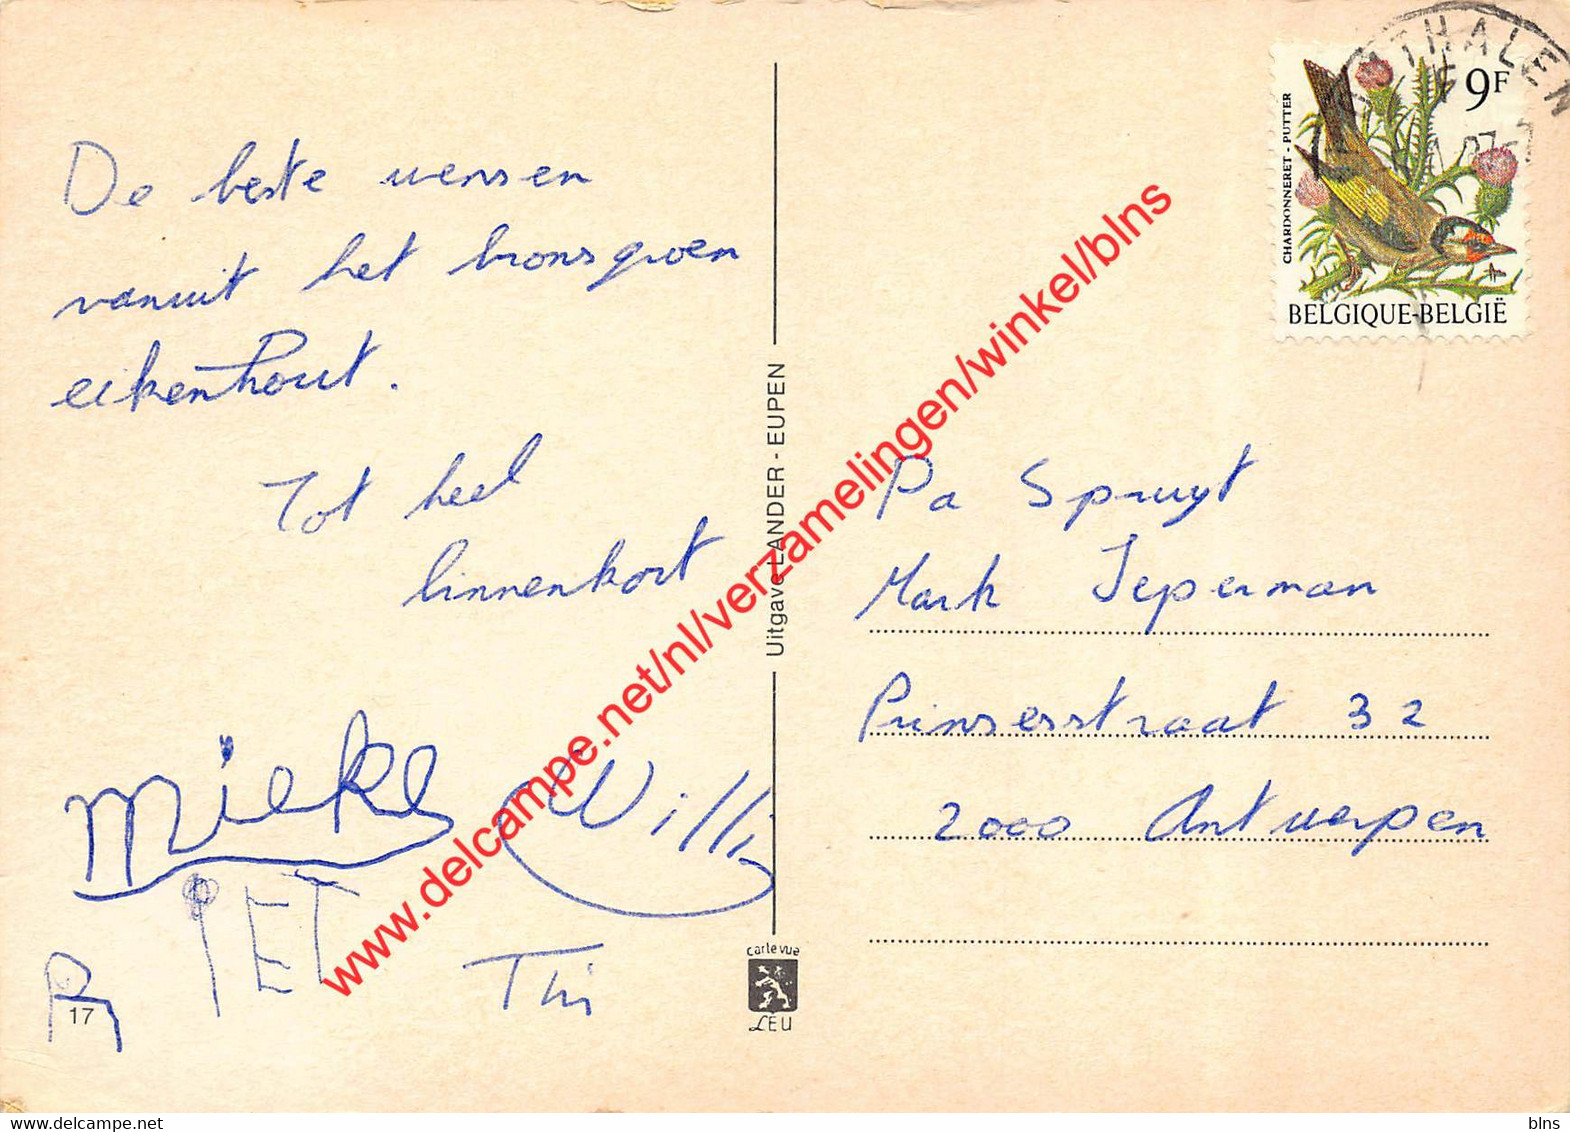 De beste wensen
vanuit het bronsgroen
eikenhout.
Tot heel
binnenkort
mieke Willy
PET
Tin
17
Uitgave LANDER - EUPEN
carte vue
LEU
CHARDONNERET - PUTTER
9F
BELGIQUE-BELGIË
Pa Spruyt
Mark Ieperman
Prinsesstraat 32
2000 Antwerpen
www.delcampe.net/nl/verzamelingen/winkel/blns
www.delcampe.net
blns